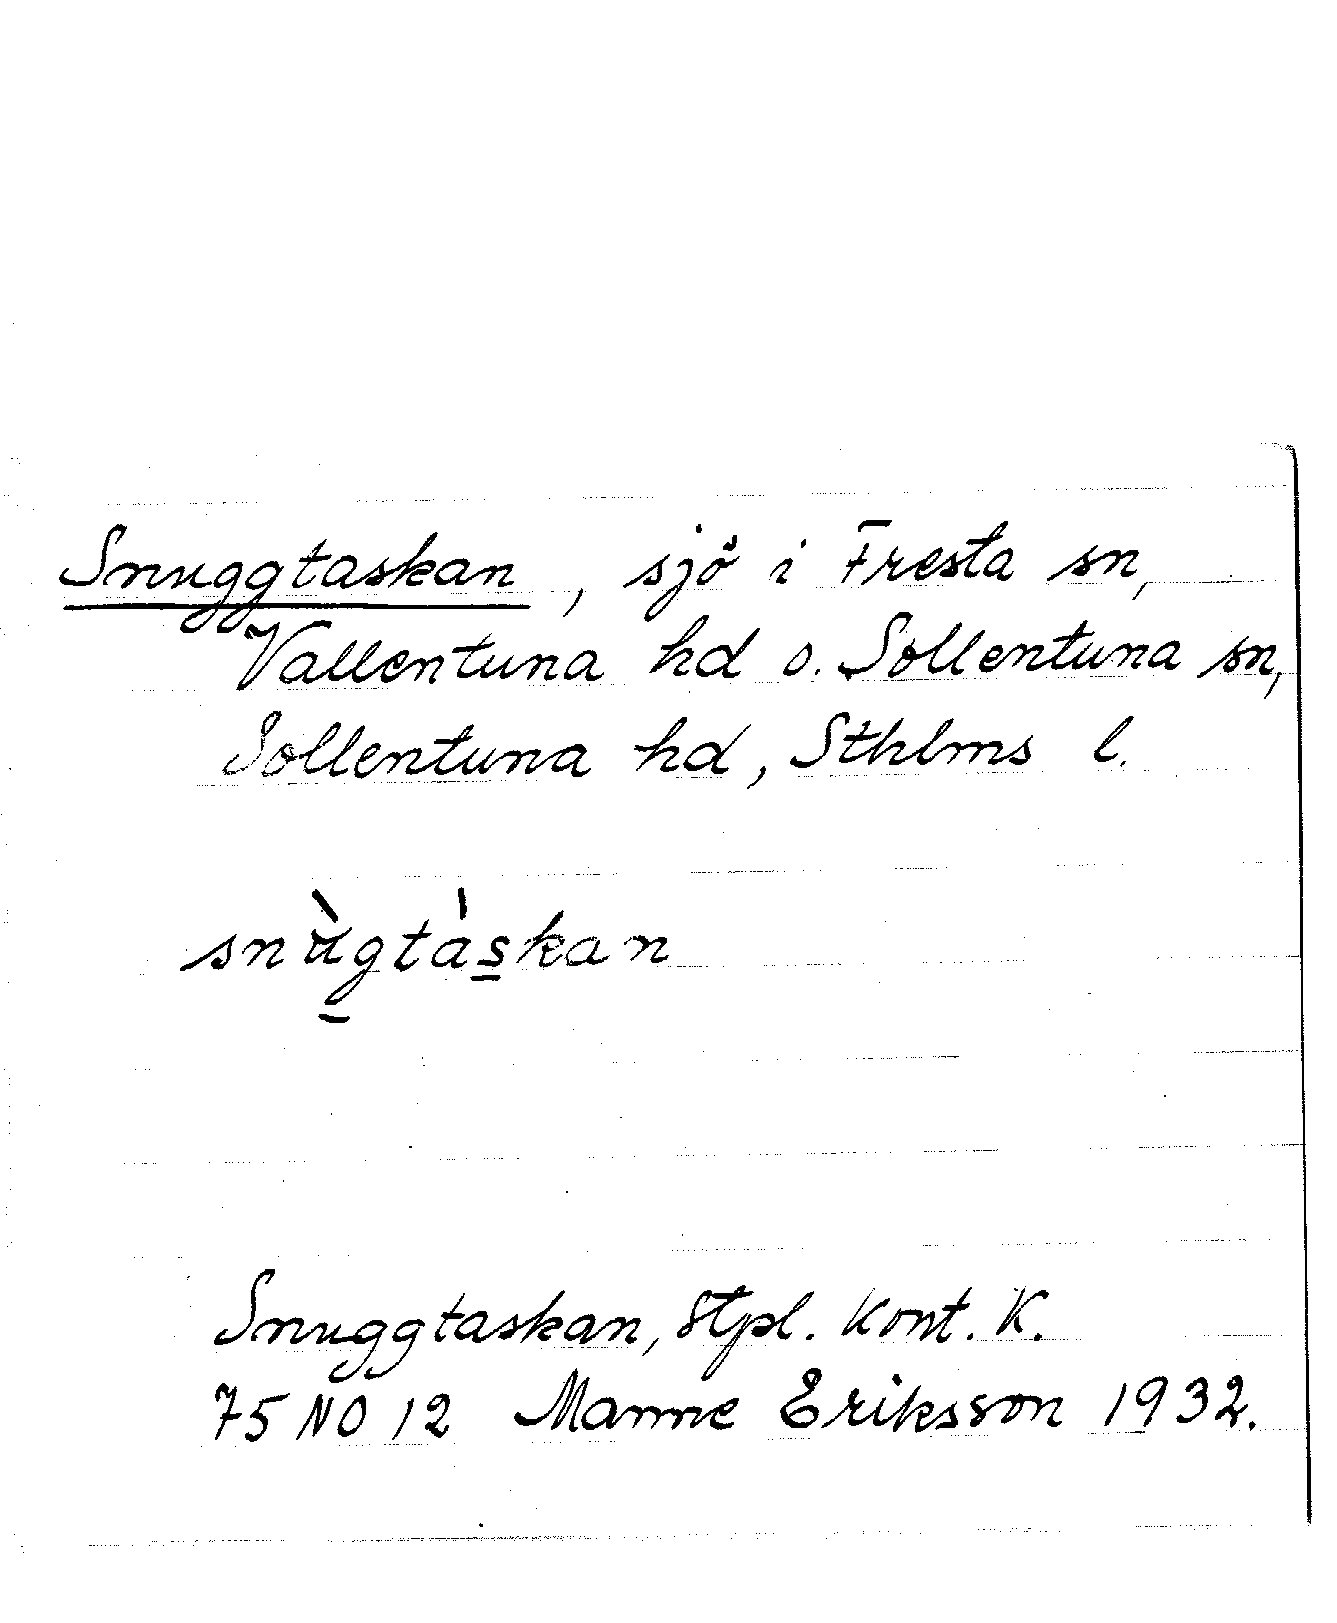 Snuggtaskan, sjö i Fresta sn,
Vallentuna hd o. Sollentuna sn,
Sollentuna hd, Sthlms l.
snùg̲tàs̲kan
Snuggtaskan, Stpl. Kont. K.
75 NO 12 Manne Eriksson 1932.